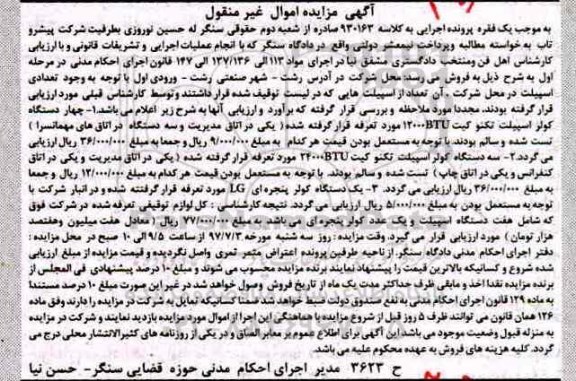 آگهی مزایده اموال غیر منقول
به موجب یک فقره پرونده اجرایی به کلاسه ۹۳۰۱۶۳ صادره از شعبه دوم حقوقی سنگر له حسین نوروزی بطرفیت شرکت پیشرو
تاب به خواسته مطالبه وپرداخت نیمعشر دولتی واقع در دادگاه سنگر که با انجام عملیات اجرایی و تشریفات قانونی و با ارزیابی
کارشناس اهل فن ومنتخب دادگستری مشفق نیا در اجرای مواد ۱۱۳ الی ۱۲۷/۱۳۶ الی ۱۴۷ قانون اجرای احکام مدنی در مرحله
اول به شرح ذیل به فروش میرسد محل شرکت در آدرس رشت - شهر صنعتی رشت - ورودی اول با توجه به وجود تعدادی
اسپیلت در محل شرکت ، آن تعداد از اسپیلت هایی که در لیست توقیف شده قرار داشتند و توسط کارشناس قبلی مورد ارزیابی
قرار گرفته بودند، مجددا مورد ملاحظه و بررسی قرار گرفته که برآورد و ارزیابی آنها به شرح زیر اعلام می باشد.۱- چهار دستگاه
کولر اسپیلت تکنو کیت ۱۲۰۰۰BTU مورد تعرفه قرار گرفته شده ( یکی در اتاق مدیریت و سه دستگاه در اتاق های مهمانسرا )
تست شده و سالم بودند. با توجه به مستعمل بودن قیمت هر کدام به مبلغ ۹/۰۰۰/۰۰۰ ریال و جمعا به مبلغ ۳۶/۰۰۰/۰۰۰ ریال ارزیابی
می گردد.۲- سه دستگاه کولر اسپیلت تکنو کیت ۲۴۰۰۰BTU مورد تعرفه قرار گرفته شده ( یکی در اتاق مدیریت و یکی در اتاق
کنفرانس و یکی در اتاق چاپ ) تست شده و سالم بودند. با توجه به مستعمل بودن قیمت هر کدام به مبلغ ۱۲/۰۰۰/۰۰۰ ریال و جمعا
به مبلغ ۳۶/۰۰۰/۰۰۰ ریال ارزیابی می گردد. ۳- یک دستگاه کولر پنجره ای LG مورد تعرفه قرار گرفته شده و در انبار شرکت با
توجه به مستعمل بودن به مبلغ ۵/۰۰۰/۰۰۰ ریال ارزیابی می گردد. نتیجه کارشناسی : کل لوازم توقیفی تعرفه شده در شرکت فوق
که شامل هفت دستگاه اسپیلت و یک عدد کولر پنجره ای می باشد به مبلغ ۷۷/۰۰۰/۰۰۰ ریال ( معادل هفت میلیون وهفتصد
هزار تومان ) مورد ارزیابی قرار می گیرد. وقت مزایده : روز سه شنبه مورخه ۹۷/۷/۳ از ساعت ۹/۵ الی ۱۰ صبح در محل مزایده :
دفتر اجرای احکام مدنی دادگاه سنگر. از ناحیه طرفین پرونده اعتراض مثمر ثمری واصل نگردیده و قیمت مزایده از مبلغ ارزیابی
شده شروع و کسانیکه بالاترین قیمت را پیشنهاد نمایند برنده مزایده محسوب می شوند و مبلغ ۱۰ درصد پیشنهادی فی المجلس از
برنده مزایده نقدا اخذ و مابقی ظرف حداکثر مدت یک ماه از تاریخ فروش وصول خواهد شد در غیر این صورت مبلغ ۱۰ درصد مستندا
به ماده ۱۲۹ قانون اجرای احکام مدنی به نفع صندوق دولت ضبط خواهد شد ضمنا کسانیکه تمایل به شرکت در مزایده را دارند وفق ماده
۱۲۶ همان قانون می توانند ظرف ۵ روز قبل از شروع مزایده با هماهنگی این اجرا از اموال مورد مزایده بازدید نمایند و شرکت در مزایده
به منزله قبول وضعیت موجود می باشد این آگهی برای اطلاع عموم بر معابر الصاق و در یکی از روزنامه های کثیرالانتشار محلی درج می
گردد. کلیه هزینه های فروش به عهده محکوم علیه می باشد.
ح ۳۶۲۳ مدیر اجرای احکام مدنی حوزه قضایی سنگر- حسن نیا